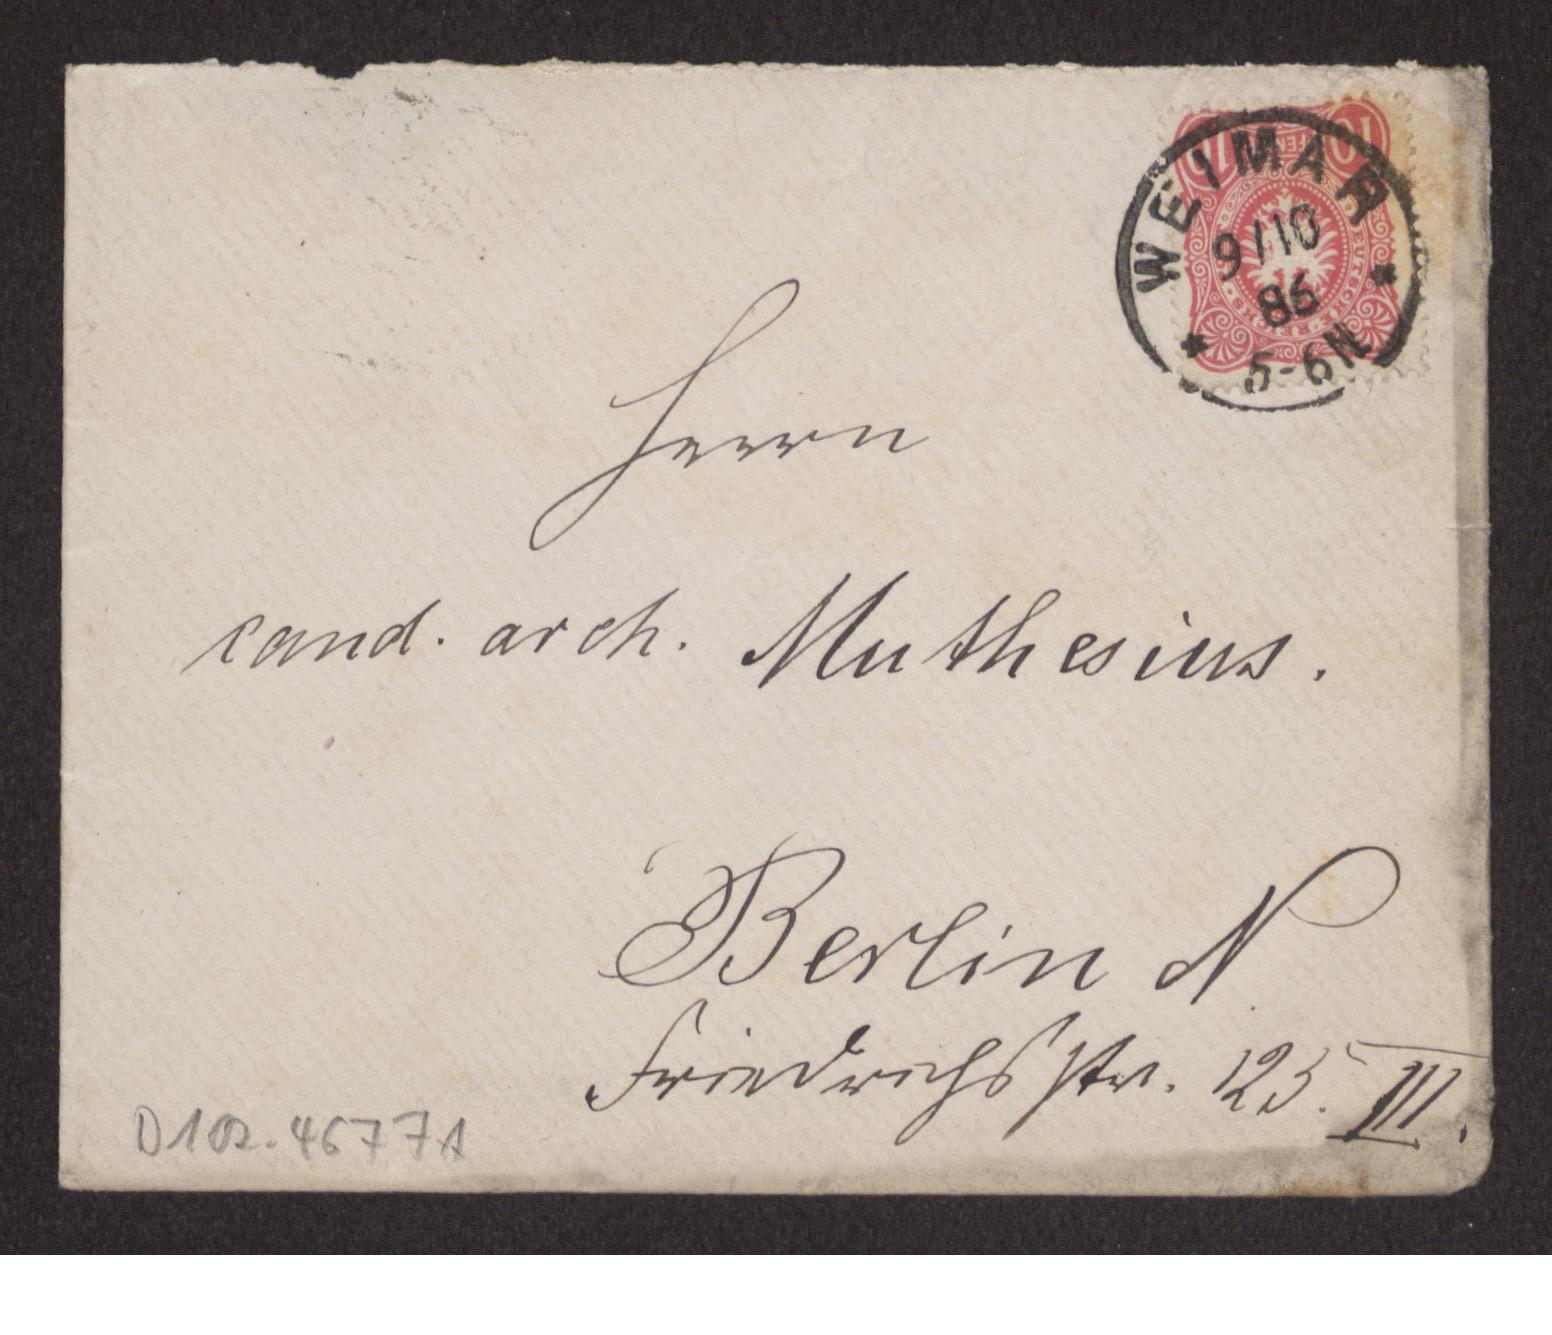 WEIMAR
9/10
86
5-6N
Herrn
cand. arch. Muthesius.
Berlin N
Friedrichsstr. 125. III.
D102.46771